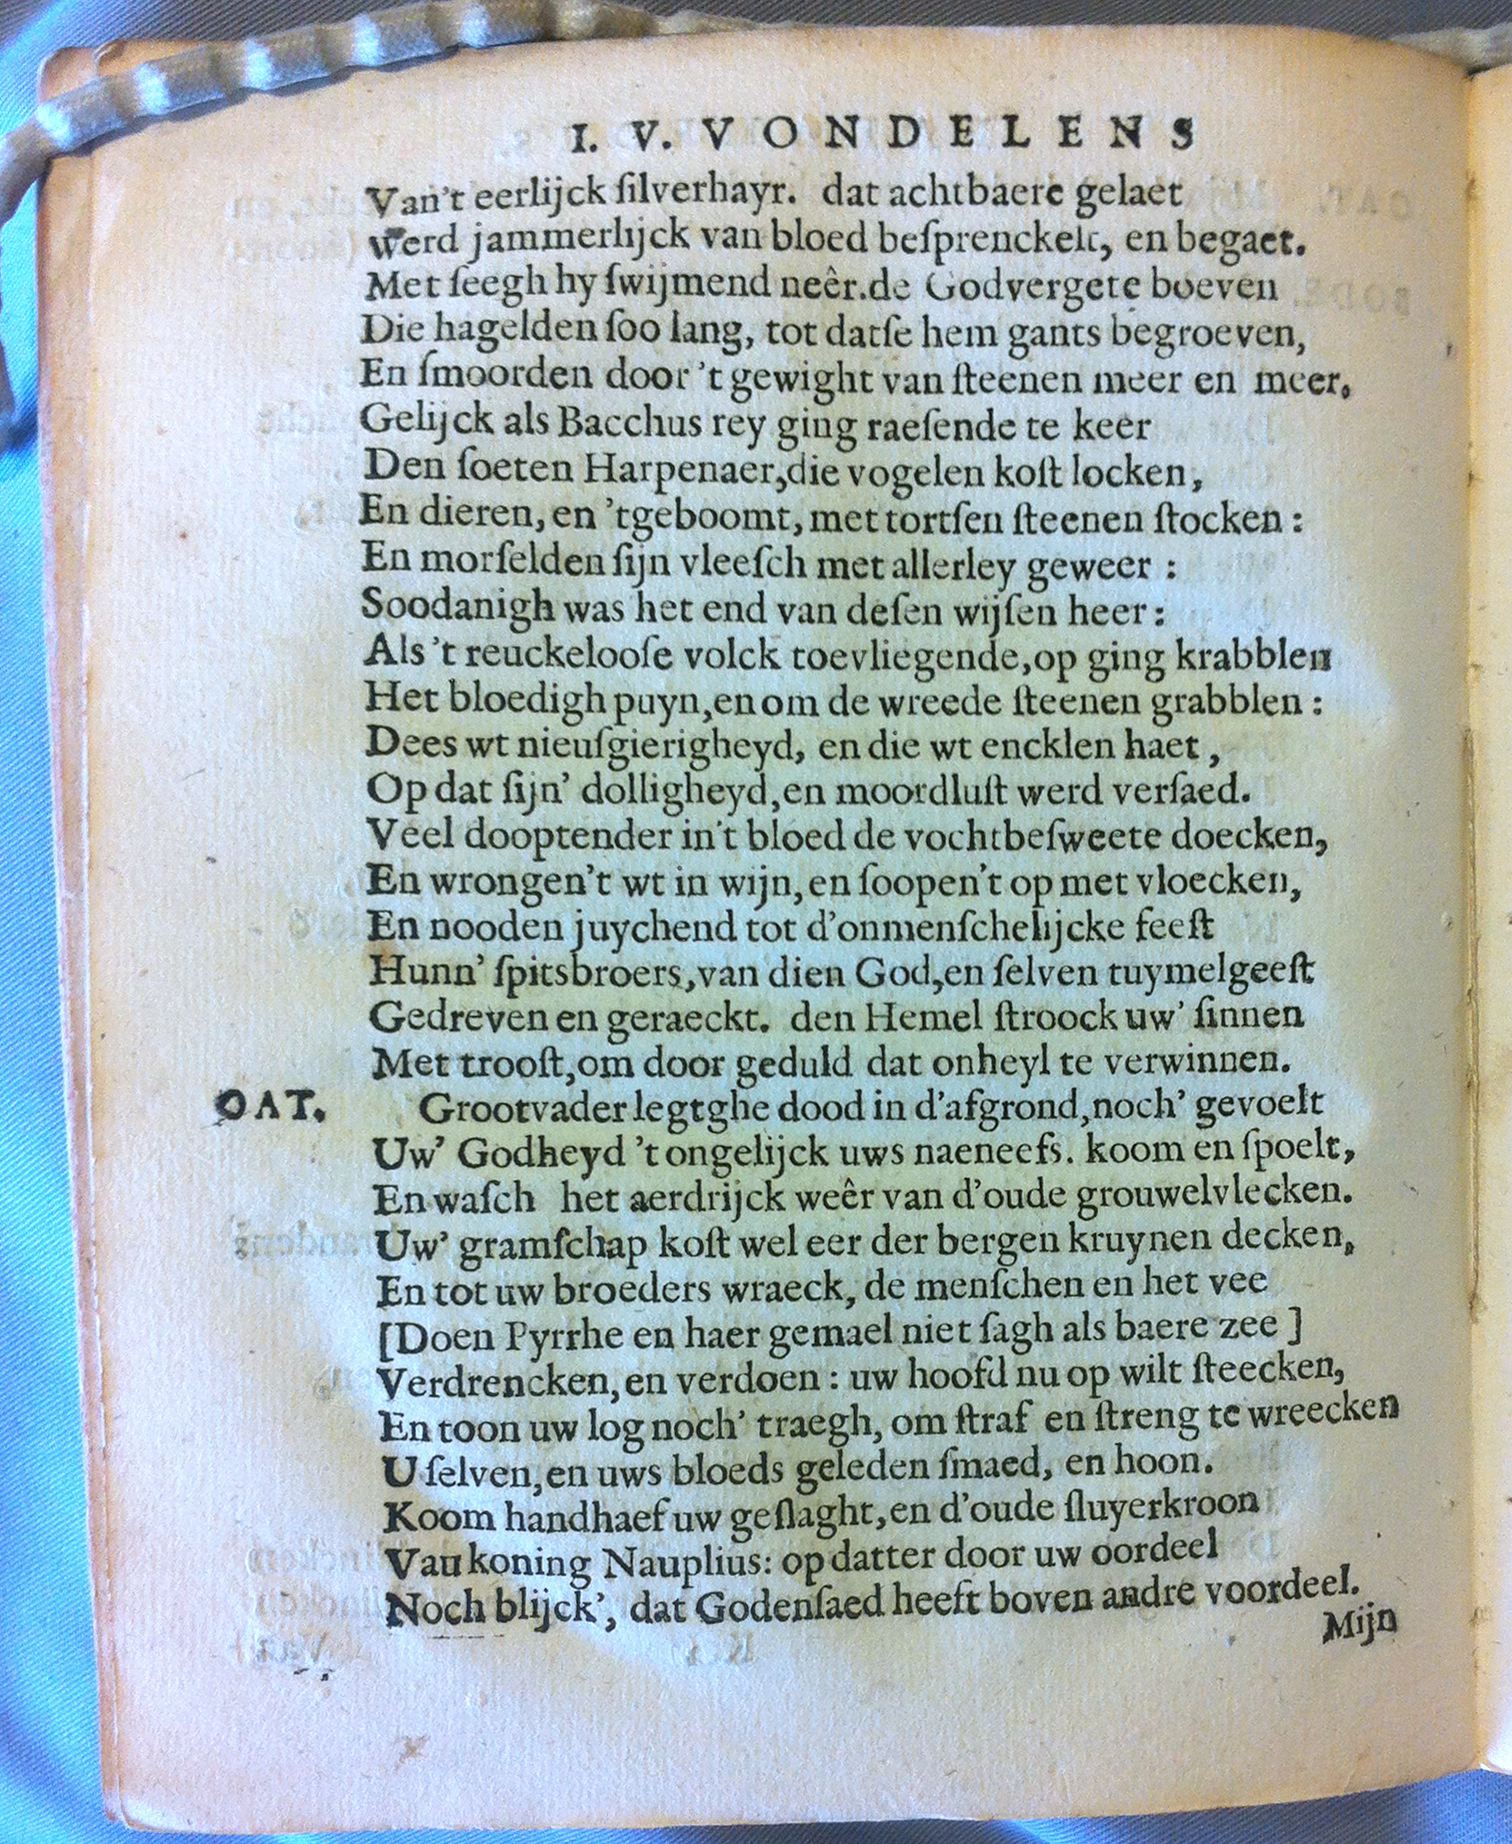 I. V. VONDELENS
Van't eerlijck ſilverhayr. dat achtbaere gelaet
werd jammerlijck van bloed beſprenckelt, en begaet.
Met ſeegh hy ſwijmend neêr. de Godvergete boeven
Die hagelden ſoo lang, tot datſe hem gants begroeven,
En ſmoorden door 't gewight van ſteenen meer en meer.
Gelijck als Bacchus rey ging raeſende te keer
Den ſoeten Harpenaer, die vogelen koſt locken,
En dieren, en 'tgeboomt, met tortſen ſteenen ſtocken :
En morſelden ſijn vleeſch met allerley geweer :
Soodanigh was het end van deſen wijſen heer :
Als 't reuckelooſe volck toevliegende, op ging krabblen
Het bloedigh puyn, en om de wreede ſteenen grabblen :
Dees wt nieuſgierigheyd, en die wt encklen haet,
Op dat ſijn' dolligheyd, en moordluſt werd verſaed.
Veel dooptender in't bloed de vochtbeſweete doecken,
En wrongen't wt in wijn, en ſoopen't op met vloecken,
En nooden juychend tot d'onmenſchelijcke feeſt
Hunn' ſpitsbroers, van dien God, en ſelven tuymelgeeſt
Gedreven en geraeckt. den Hemel ſtroock uw' ſinnen
Met trooſt, om door geduld dat onheyl te verwinnen.
OAT. Grootvader legtghe dood in d'afgrond, noch' gevoelt
Uw' Godheyd 't ongelijck uws naeneefs. koom en ſpoelt,
En waſch het aerdrijck weêr van d'oude grouwelvlecken.
Uw' gramſchap koſt wel eer der bergen kruynen decken,
En tot uw broeders wraeck, de menſchen en het vee
[Doen Pyrrhe en haer gemael niet ſagh als baere zee]
Verdrencken, en verdoen : uw hoofd nu op wilt ſteecken,
En toon uw log noch' traegh, om ſtraf en ſtreng te wreecken
U ſelven, en uws bloeds geleden ſmaed, en hoon.
Koom handhaef uw geſlaght, en d'oude ſluyerkroon
Van koning Nauplius: op datter door uw oordeel
Noch blijck', dat Godenſaed heeft boven andre voordeel.
Mijn